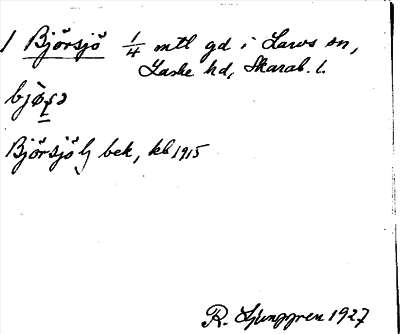 1 Björsjö 1/4 mtl gd i Larvs sn,
Laske hd, Skarab. l.
Björsjö bek, kb 1915
R. Ljunggren 1927